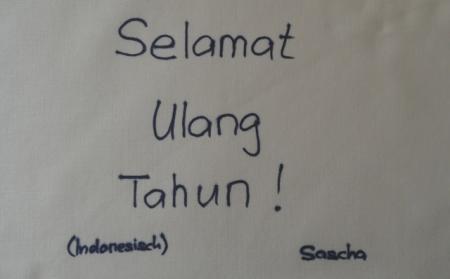 Selamat
Ulang
Tahun !
(Indonesisch) Sascha